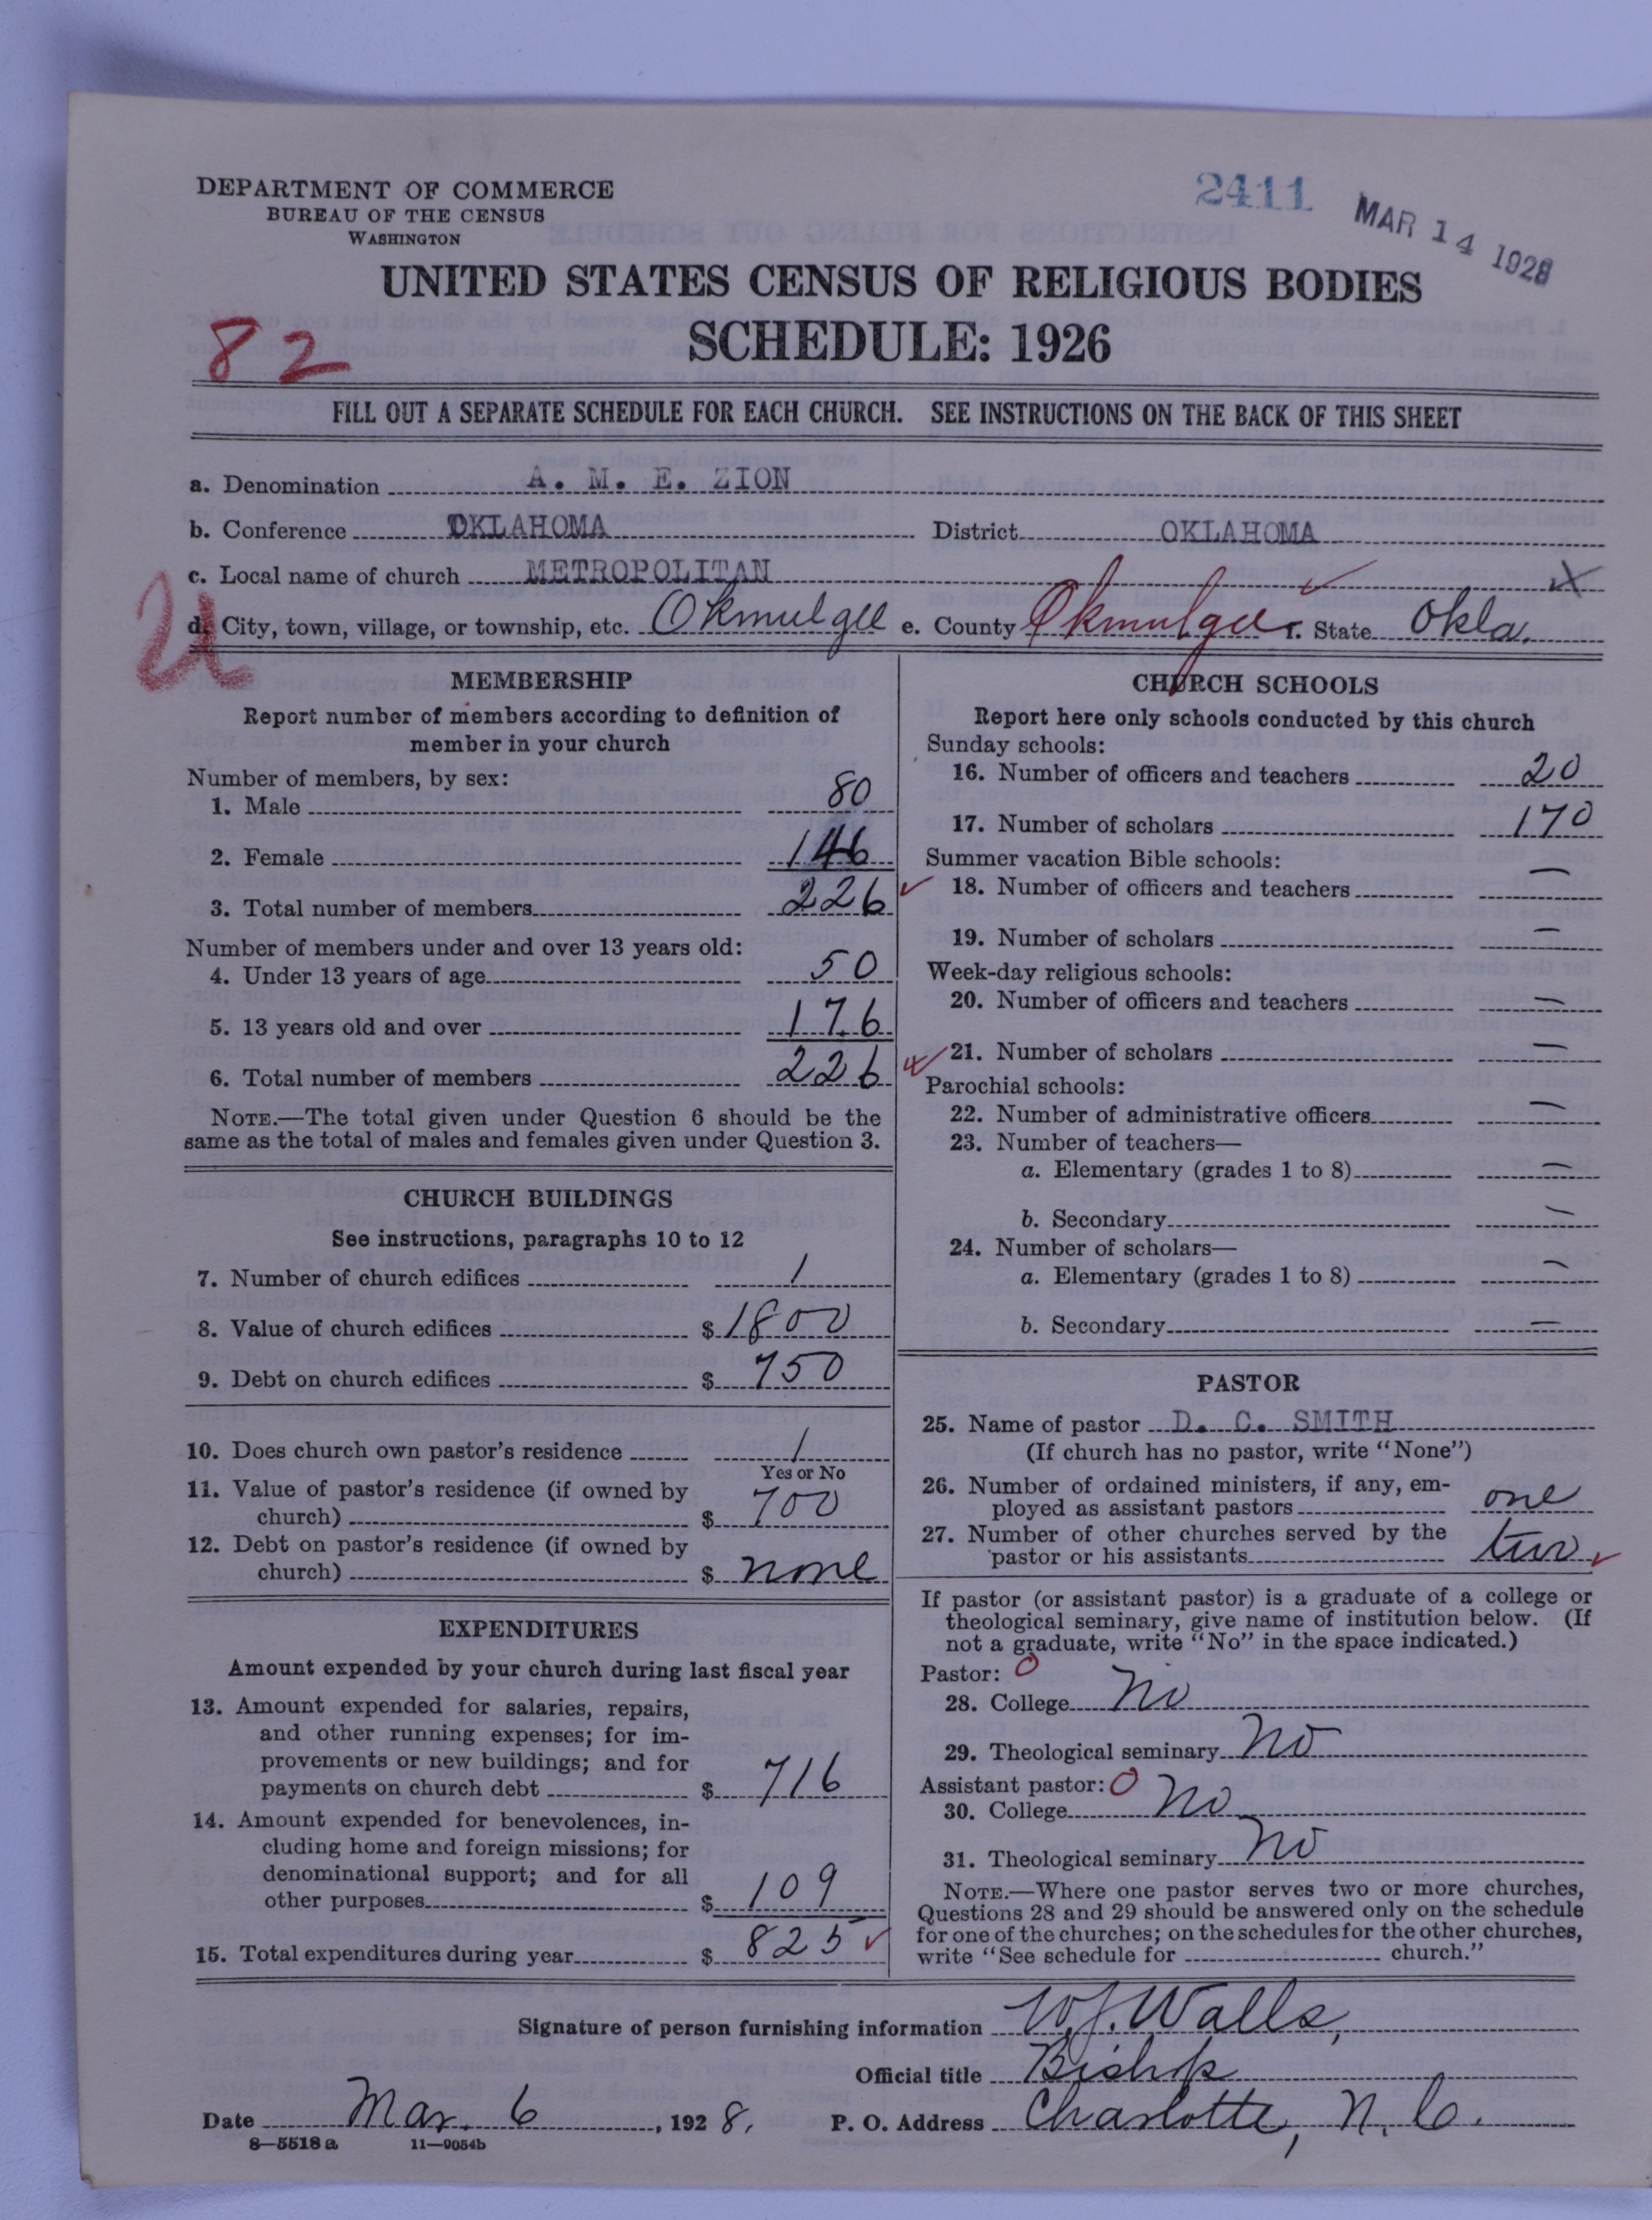 DEPARTMENT OF COMMERCE
BUREAU OF THE CENSUS
WASHINGTON
2411
MAR 14 1928
UNITED STATES CENSUS OF RELIGIOUS BODIES
SCHEDULE: 1926
82
FILL OUT A SEPARATE SCHEDULE FOR EACH CHURCH. SEE INSTRUCTIONS ON THE BACK OF THIS SHEET
a. Denomination A. M. E. ZION
b. Conference OKLAHOMA District OKLAHOMA
c. Local name of church METROPOLITAN
d. City, town, village, or township, etc. Okmulgee e. County Okmulgee f. State Okla.
U
MEMBERSHIP
Report number of members according to definition of
member in your church
Number of members, by sex:
1. Male 80
2. Female 146
3. Total number of members 226
Number of members under and over 13 years old:
4. Under 13 years of age 50
5. 13 years old and over 176
6. Total number of members 226
NOTE.—The total given under Question 6 should be the
same as the total of males and females given under Question 3.
CHURCH BUILDINGS
See instructions, paragraphs 10 to 12
7. Number of church edifices 1
8. Value of church edifices $ 1800
9. Debt on church edifices $ 750
10. Does church own pastor's residence 1
Yes or No
11. Value of pastor's residence (if owned by
church) $ 700
12. Debt on pastor's residence (if owned by
church) $ none
EXPENDITURES
Amount expended by your church during last fiscal year
13. Amount expended for salaries, repairs,
and other running expenses; for im-
provements or new buildings; and for
payments on church debt $ 716
14. Amount expended for benevolences, in-
cluding home and foreign missions; for
denominational support; and for all
other purposes $ 109
15. Total expenditures during year $ 825
CHURCH SCHOOLS
Report here only schools conducted by this church
Sunday schools:
16. Number of officers and teachers 20
17. Number of scholars 170
Summer vacation Bible schools:
18. Number of officers and teachers —
19. Number of scholars —
Week-day religious schools:
20. Number of officers and teachers —
21. Number of scholars —
Parochial schools:
22. Number of administrative officers —
23. Number of teachers—
a. Elementary (grades 1 to 8) —
b. Secondary —
24. Number of scholars—
a. Elementary (grades 1 to 8) —
b. Secondary —
PASTOR
25. Name of pastor D. C. SMITH
(If church has no pastor, write "None")
26. Number of ordained ministers, if any, em-
ployed as assistant pastors one
27. Number of other churches served by the
pastor or his assistants two
If pastor (or assistant pastor) is a graduate of a college or
theological seminary, give name of institution below. (If
not a graduate, write "No" in the space indicated.)
Pastor: 0
28. College No
29. Theological seminary No
Assistant pastor: 0
30. College No
31. Theological seminary No
NOTE.—Where one pastor serves two or more churches,
Questions 28 and 29 should be answered only on the schedule
for one of the churches; on the schedules for the other churches,
write "See schedule for church."
Signature of person furnishing information W. J. Walls,
Official title Bishop
Date Mar. 6, 1928. P. O. Address Charlotte, N. C.
8—5518 a 11—9054b